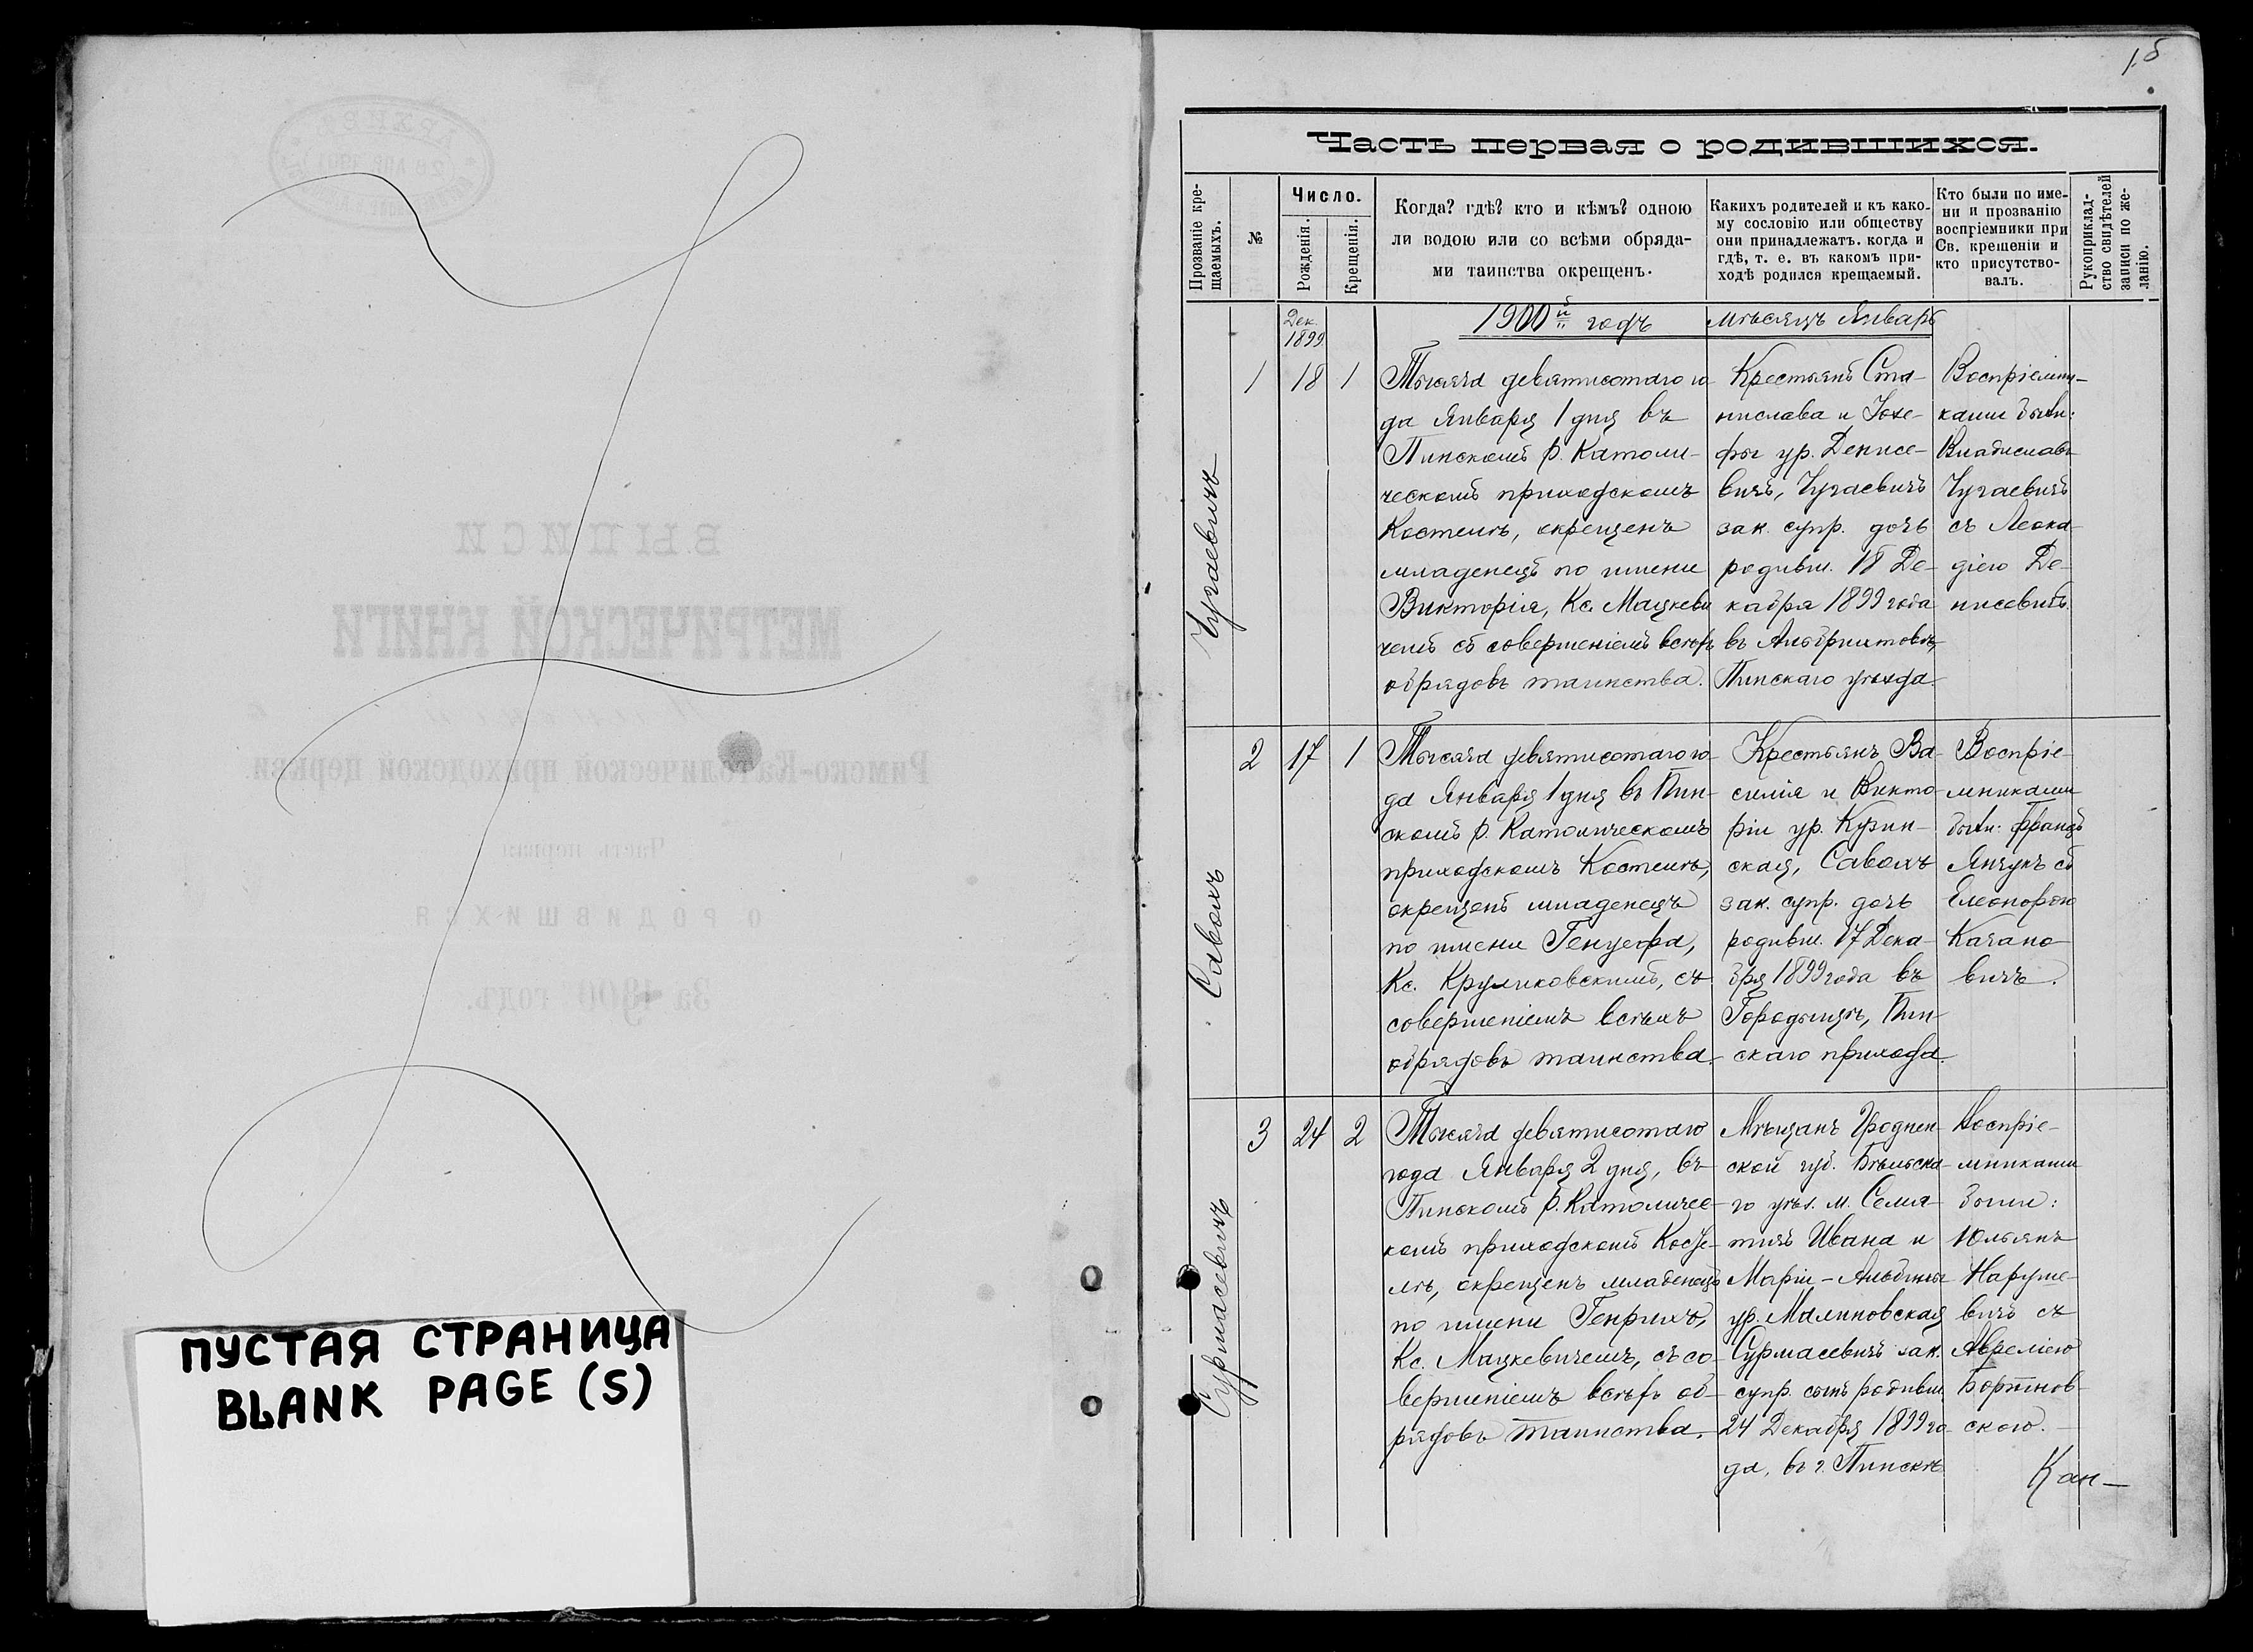 ПУСТАЯ СТРАНИЦА
BLANK PAGE (S)
Часть первая о родившихся.
Прозваніе крещаемыхъ.
№
Число.
Рожденія.
Крещенія.
Когда? гдѣ? кто и кѣмъ? одною
ли водою или со всѣми обряда-
ми таинства окрещенъ.
Каихъ родителей и къ како-
му сословію или обществу
они принадлежатъ. когда и
гдѣ, т. е. въ какомъ при-
ходѣ родился крещаемый.
Кто были по име-
ни и прозванію
воспріемники при
Св. крещеніи и
кто присутство-
валъ.
Рукоприклад-
ство свидѣтелей
записи по же-
ланію.
Дек.
1899
1900й годъ
мѣсяцъ Январь
Чугаевичъ
1
18
1
Тысяча девятисотаго го-
да Января 1 дня въ
Пинскомъ р. Католи-
ческомъ приходскомъ
Костелѣ, окрещенъ
младенецъ по имени
Викторія, Кс. Мацкеви
чемъ съ совершеніемъ всѣхъ
обрядовъ таинства.
Крестьянъ Ста-
нислава и Юзе-
фы ур. Денисе-
вичъ, Чугаевичъ
зак. супр. дочь
родивш. 18 Де-
кабря 1899 года
въ
Пинскаго уѣзда.
Воспріемни-
ками были:
Владиславъ
Чугаевичъ
съ Леока-
діею Де-
нисевичъ.
Савохъ
2
17
1
Тысяча девятисотаго го-
да Января 1 дня въ Пин-
скомъ р. Католическомъ
приходскомъ Костелѣ,
окрещенъ младенецъ
по имени Генуефа,
Кс. Круликовскимъ, съ
совершеніемъ всѣхъ
обрядовъ таинства.
Крестьянъ Ва-
силія и Викто-
ріи ур. Кузин-
ская, Савохъ
зак. супр. дочь
родивш. 17 Дека-
бря 1899 года въ
Городыщѣ, Пин-
скаго прихода.
Воспріе-
мниками
были: Францъ
Янчукъ съ
Елеонорою
Качано-
вичъ.
Сурмасевичъ
3
24
2
Тысяча девятисотаго
года Января 2 дня, въ
Пинскомъ р. Католичес-
комъ приходскомъ Косте-
лѣ, окрещенъ младенецъ
по имени Генрихъ,
Кс. Мацкевичемъ, съ со-
вершеніемъ всѣхъ об-
рядовъ таинства.
Мѣщанъ Гроднен-
ской губ. Бѣльска-
го уѣз. м. Семя-
тичъ Ивана и
Маріи-Альбины
ур. Малиновская
Сурмасевичъ зак.
супр. сынъ родивш.
24 Декабря 1899 го-
да, въ г. Пинскѣ
Воспріе-
мниками
были:
Юльянъ
Наруше-
вичъ съ
Авреліею
Бортнов-
скою.
Кан-